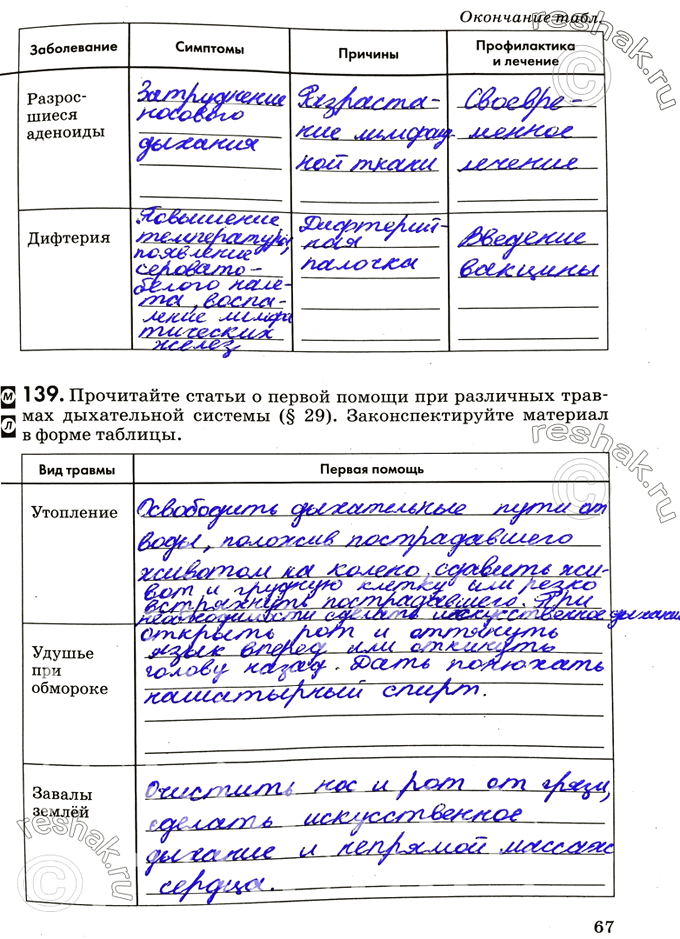 Окончание табл.
Заболевание Симптомы Причины Профилактика и лечение
Разрос-
шиеся
аденоиды
Затруднение
носового
дыхания
Разраста-
ние лимфоид-
ной ткани
Своевре-
менное
лечение
Дифтерия
Повышение
температуры,
появление
серовато-
белого нале-
та, воспа-
ление лимфа
тических
желез
Дифтерий-
ная
палочка
Введение
вакцины
М
Л
139. Прочитайте статьи о первой помощи при различных трав-
мах дыхательной системы (§ 29). Законспектируйте материал
в форме таблицы.
Вид травмы Первая помощь
Утопление
Освободить дыхательные пути от
воды, положив пострадавшего
животом на колено, сдавить жи-
вот и грудную клетку или резко
встряхнуть пострадавшего. При
необходимости сделать искусственное дыхание
Удушье
при
обмороке
открыть рот и оттянуть
язык вперед или откинуть
голову назад. Дать понюхать
нашатырный спирт.
Завалы
землёй
Очистить нос и рот от грязи,
сделать искусственное
дыхание и непрямой массаж
сердца.
67
reshak.ru
reshak.ru
reshak.ru
reshak.ru